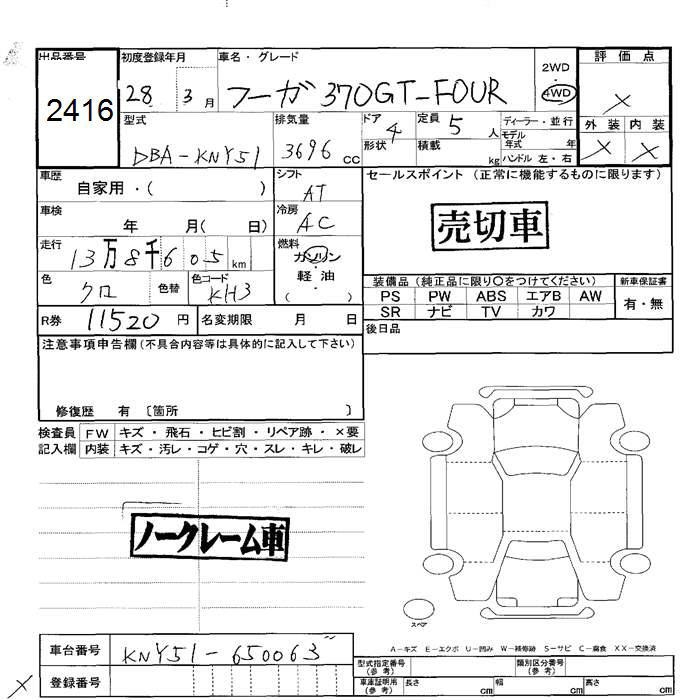 出品番号
2416
初度登録年月
28 3月
車名・グレード
フーガ 370GT-FOUR
2WD
・
4WD
評価点
X
外装 内装
X X
型式
DBA-KNY51
排気量
3696 cc
ドア 4
形状
定員 5人
積載 kg
ディーラー・並行
モデル年式 年
ハンドル 左・右
車歴
自家用・( )
シフト
AT
車検
年 月( 日)
冷房
AC
走行
13万8千605km
燃料
ガソリン
・
軽油
( )
色
クロ
色替
色コード
KH3
R券 11520円
名変期限 月 日
セールスポイント (正常に機能するものに限ります)
売切車
装備品 (純正品に限り○をつけてください)
PS PW ABS エアB AW
SR ナビ TV カワ
新車保証書
有・無
後日品
注意事項申告欄 (不具合内容等は具体的に記入して下さい)
修復歴 有 〔箇所 〕
検査員 FW キズ・飛石・ヒビ割・リペア跡・×要
記入欄 内装 キズ・汚レ・コゲ・穴・スレ・キレ・破レ
ノークレーム車
スペア
A-キズ E-エクボ U-凹み W-補修跡 S-サビ C-腐食 XX-交換済
車台番号 KNY51-650063
X 登録番号
型式指定番号(参考)
類別区分番号(参考)
車庫証明用(参考) 長さ cm 幅 cm 高さ cm